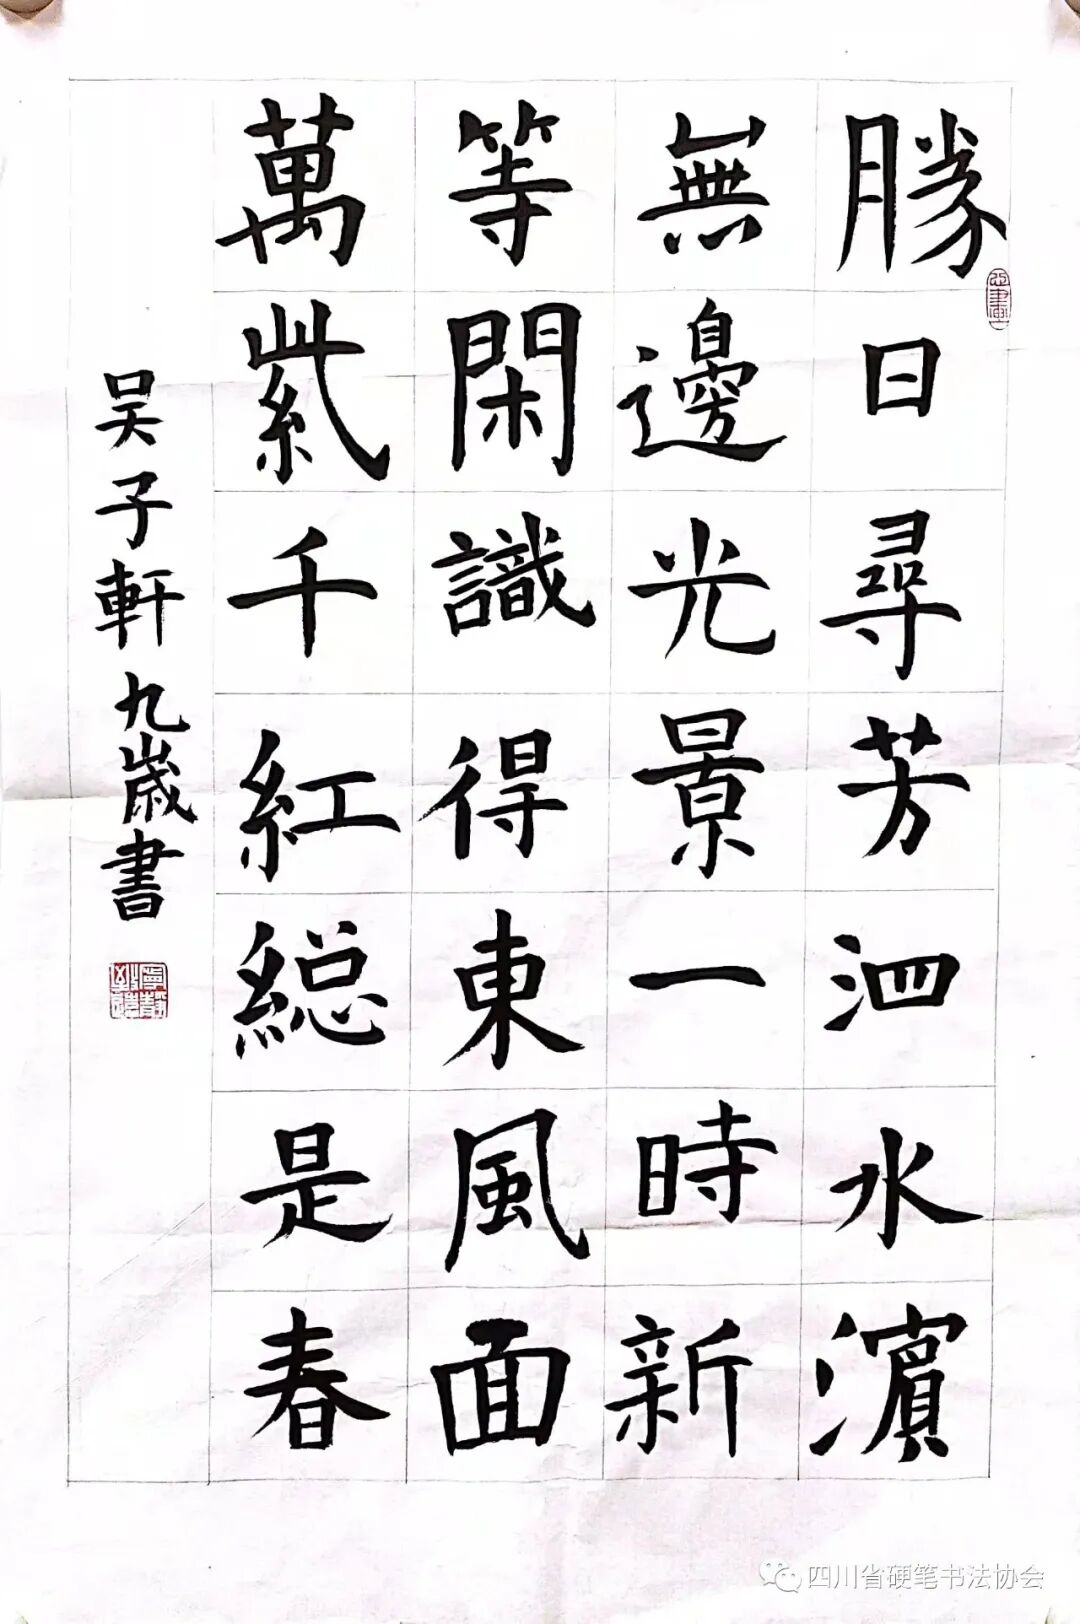 勝日尋芳泗水濱
無邊光景一時新
等閑識得東風面
萬紫千紅総是春
吴子軒九歲書
四川省硬笔书法协会